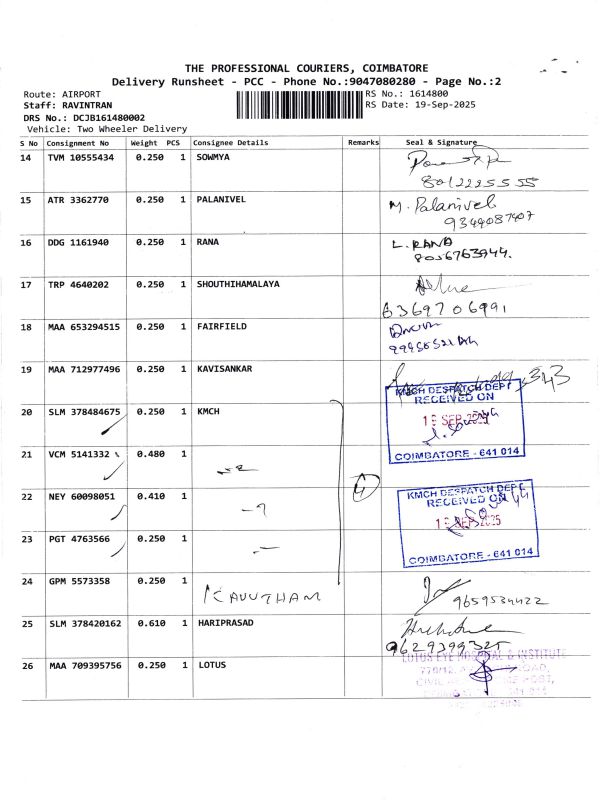 THE PROFESSIONAL COURIERS, COIMBATORE
Delivery Runsheet - PCC - Phone No.:9047080280 - Page No.:2
Route: AIRPORT RS No.: 1614800
Staff: RAVINTRAN RS Date: 19-Sep-2025
DRS No.: DCJB161480002
Vehicle: Two Wheeler Delivery
S No Consignment No Weight PCS Consignee Details Remarks Seal & Signature
14 TVM 10555434 0.250 1 SOWMYA
8012225555
15 ATR 3362770 0.250 1 PALANIVEL M. Palanivel
9344087407
16 DDG 1161940 0.250 1 RANA L. RANA
8056763944.
17 TRP 4640202 0.250 1 SHOUTHIHAMALAYA
6369706991
18 MAA 653294515 0.250 1 FAIRFIELD
19 MAA 712977496 0.250 1 KAVISANKAR
20 SLM 378484675 0.250 1 KMCH KMCH DESPATCH DEPT
RECEIVED ON
SEP 2025
COIMBATORE - 641 014
21 VCM 5141332 0.480 1
22 NEY 60098051 0.410 1 4 KMCH DESPATCH DEPT
RECEIVED ON
SEP 2025
COIMBATORE - 641 014
23 PGT 4763566 0.250 1
24 GPM 5573358 0.250 1 KAVUTHAM 9659534422
25 SLM 378420162 0.610 1 HARIPRASAD
9629399325
26 MAA 709395756 0.250 1 LOTUS LOTUS EYE HOSPITAL & INSTITUTE